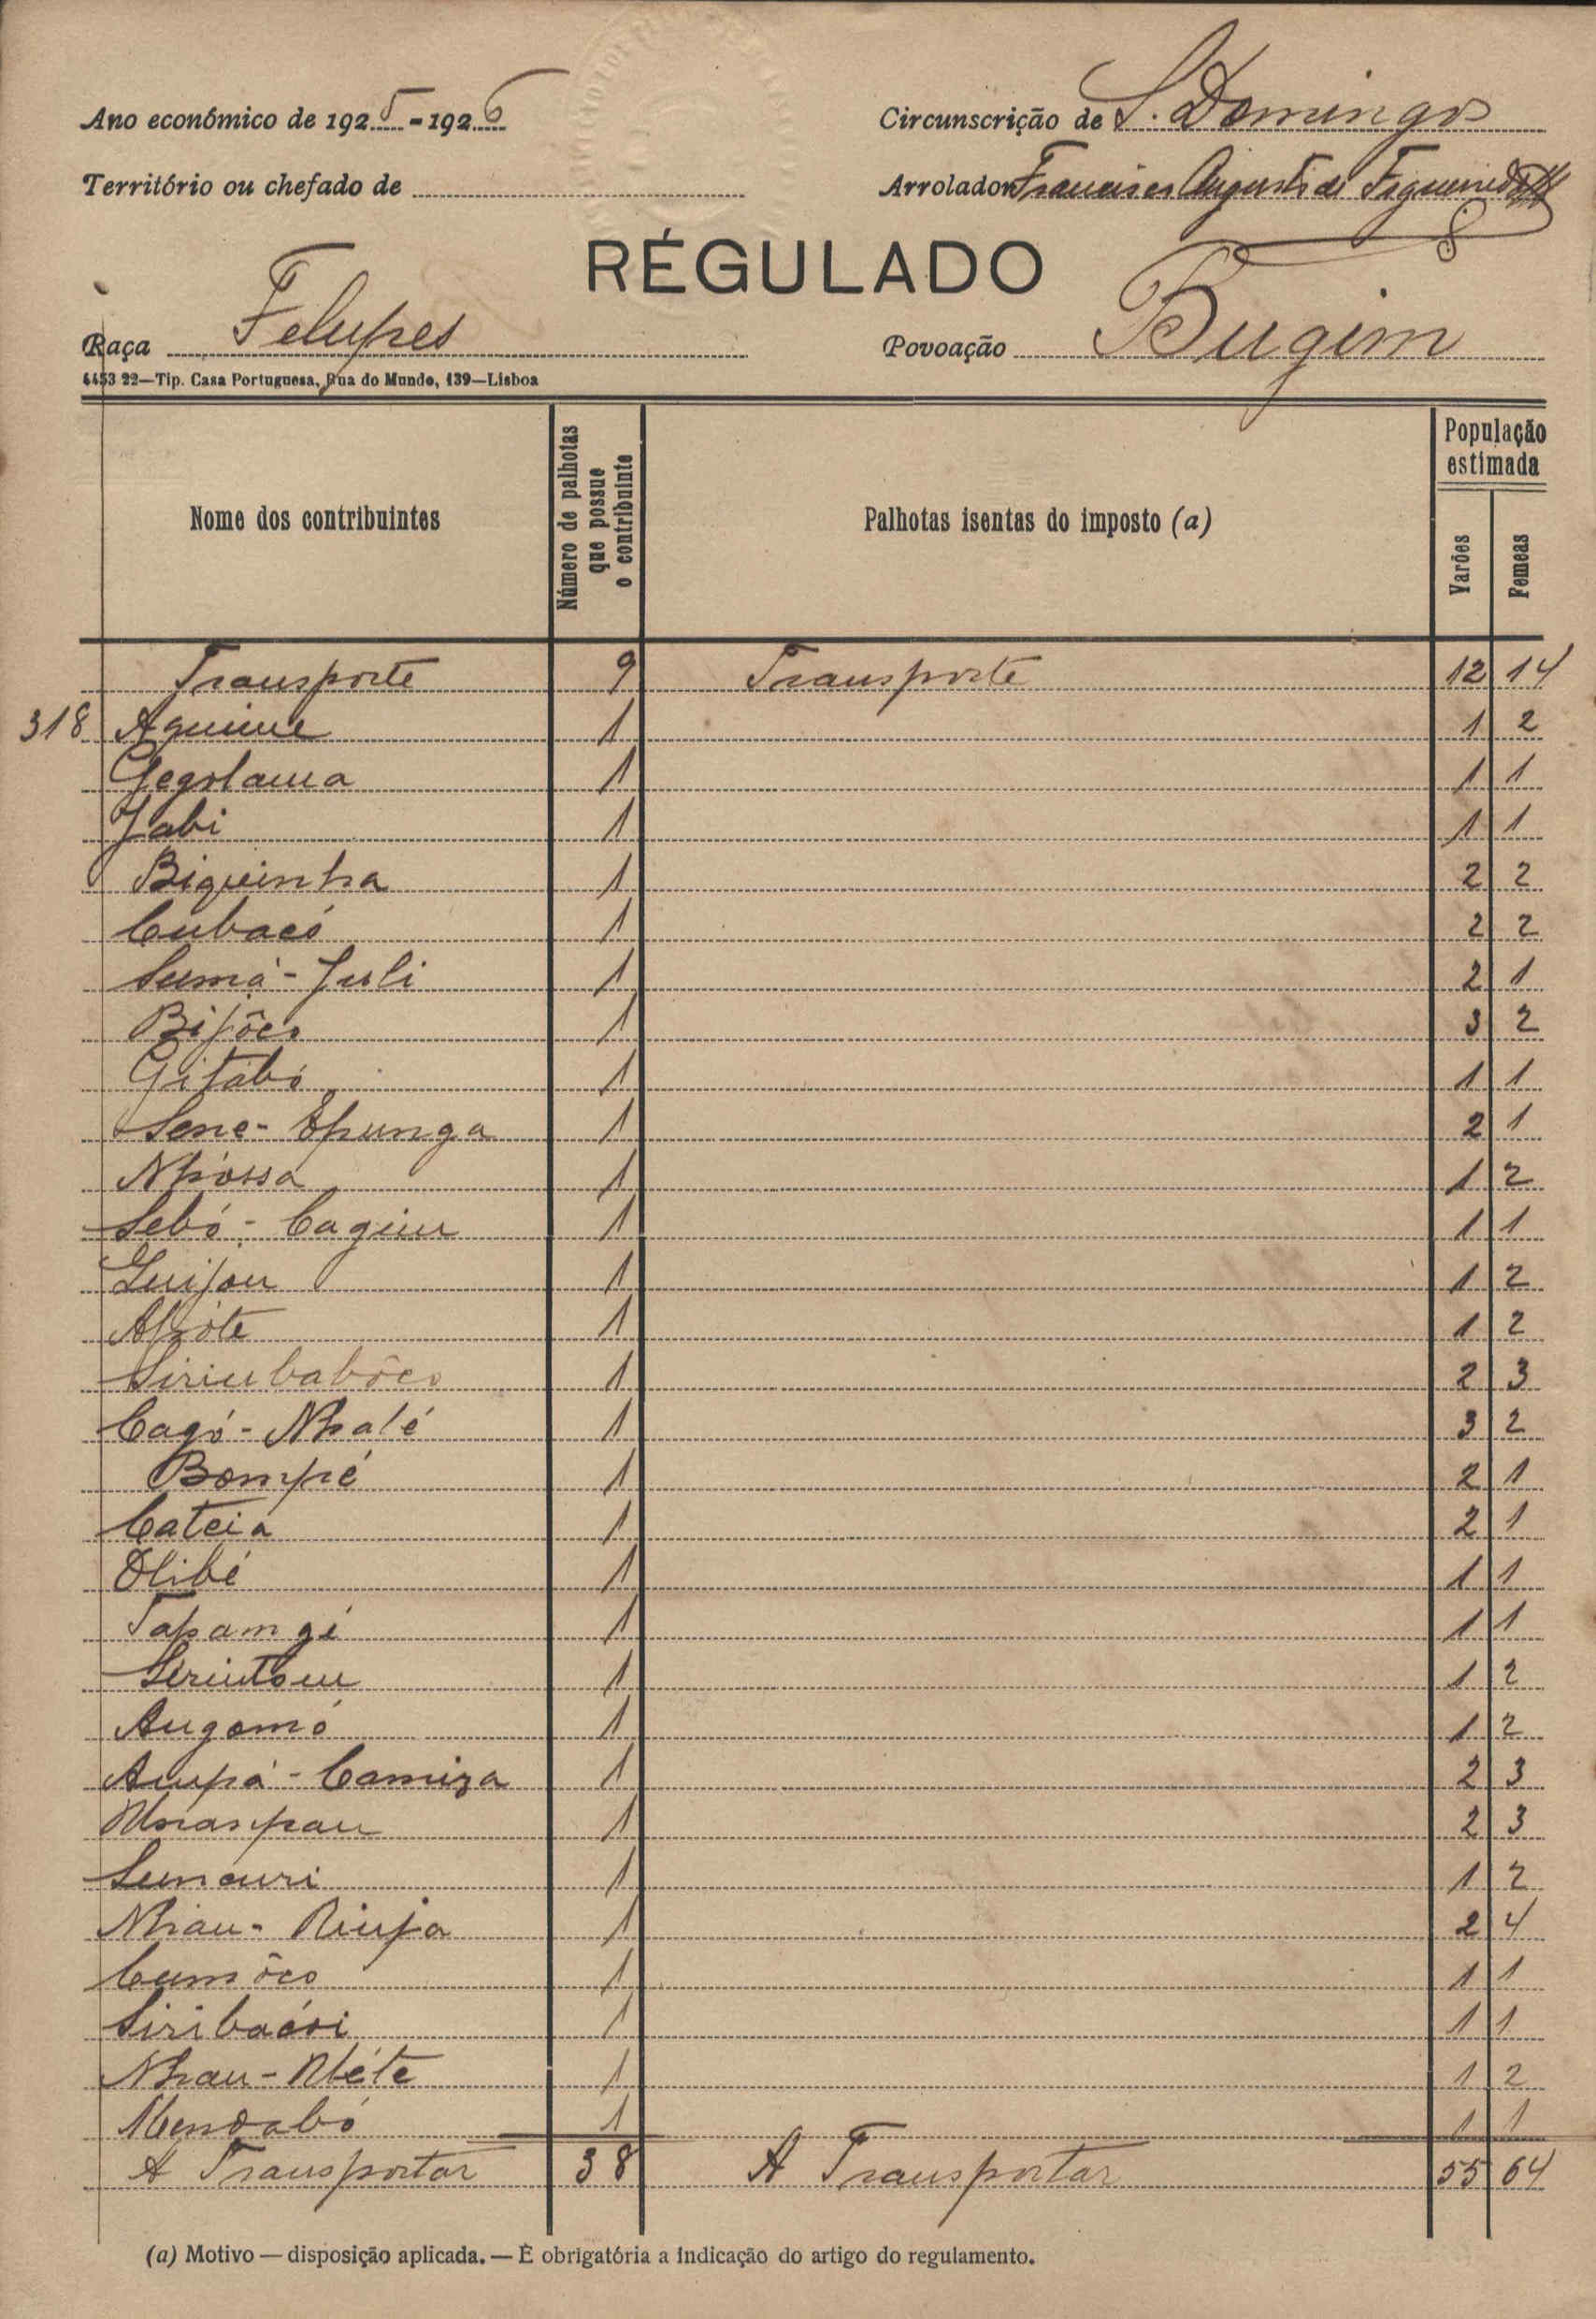 Ano económico de 1925-1926
Circunscrição de S. Domingos
Território ou chefado de
Arrolador Francisco Augusto de Figueiredo
RÉGULADO
Raça Felupes
Povoação Bugim
4453 22—Tip. Casa Portuguesa, Rua do Mundo, 139—Lisboa
Nome dos contribuintes
Número de palhotas que possue o contribuinte
Palhotas isentas do imposto (a)
População estimada
Varões
Femeas
Transporte 9 Transporte 12 14
318 Aquime 1 1 2
Gegolama 1 1 1
Jabi 1 1 1
Biqueinha 1 2 2
Cubacó 1 2 2
Sumá-Juli 1 2 1
Bijôco 1 3 2
Gitabó 1 1 1
Sene-Apunga 1 2 1
Nhóssa 1 1 2
Sebó-Cagim 1 1 1
Luijou 1 1 2
Apóte 1 1 2
Sirimbabôco 1 2 3
Cagó-Nhalé 1 3 2
Bompé 1 2 1
Cateia 1 2 1
Olibé 1 1 1
Tapamgi 1 1 1
Sirintom 1 1 2
Augomó 1 1 2
Aupá-Camiza 1 2 3
1 2 3
Sumauri 1 1 2
Nhau-Riuja 1 2 4
Cumôco 1 1 1
Siribacói 1 1 1
Nhau-Néte 1 1 2
Mendabó 1 1 1
A Transportar 38 A Transportar 55 64
(a) Motivo — disposição aplicada. — È obrigatória a indicação do artigo do regulamento.